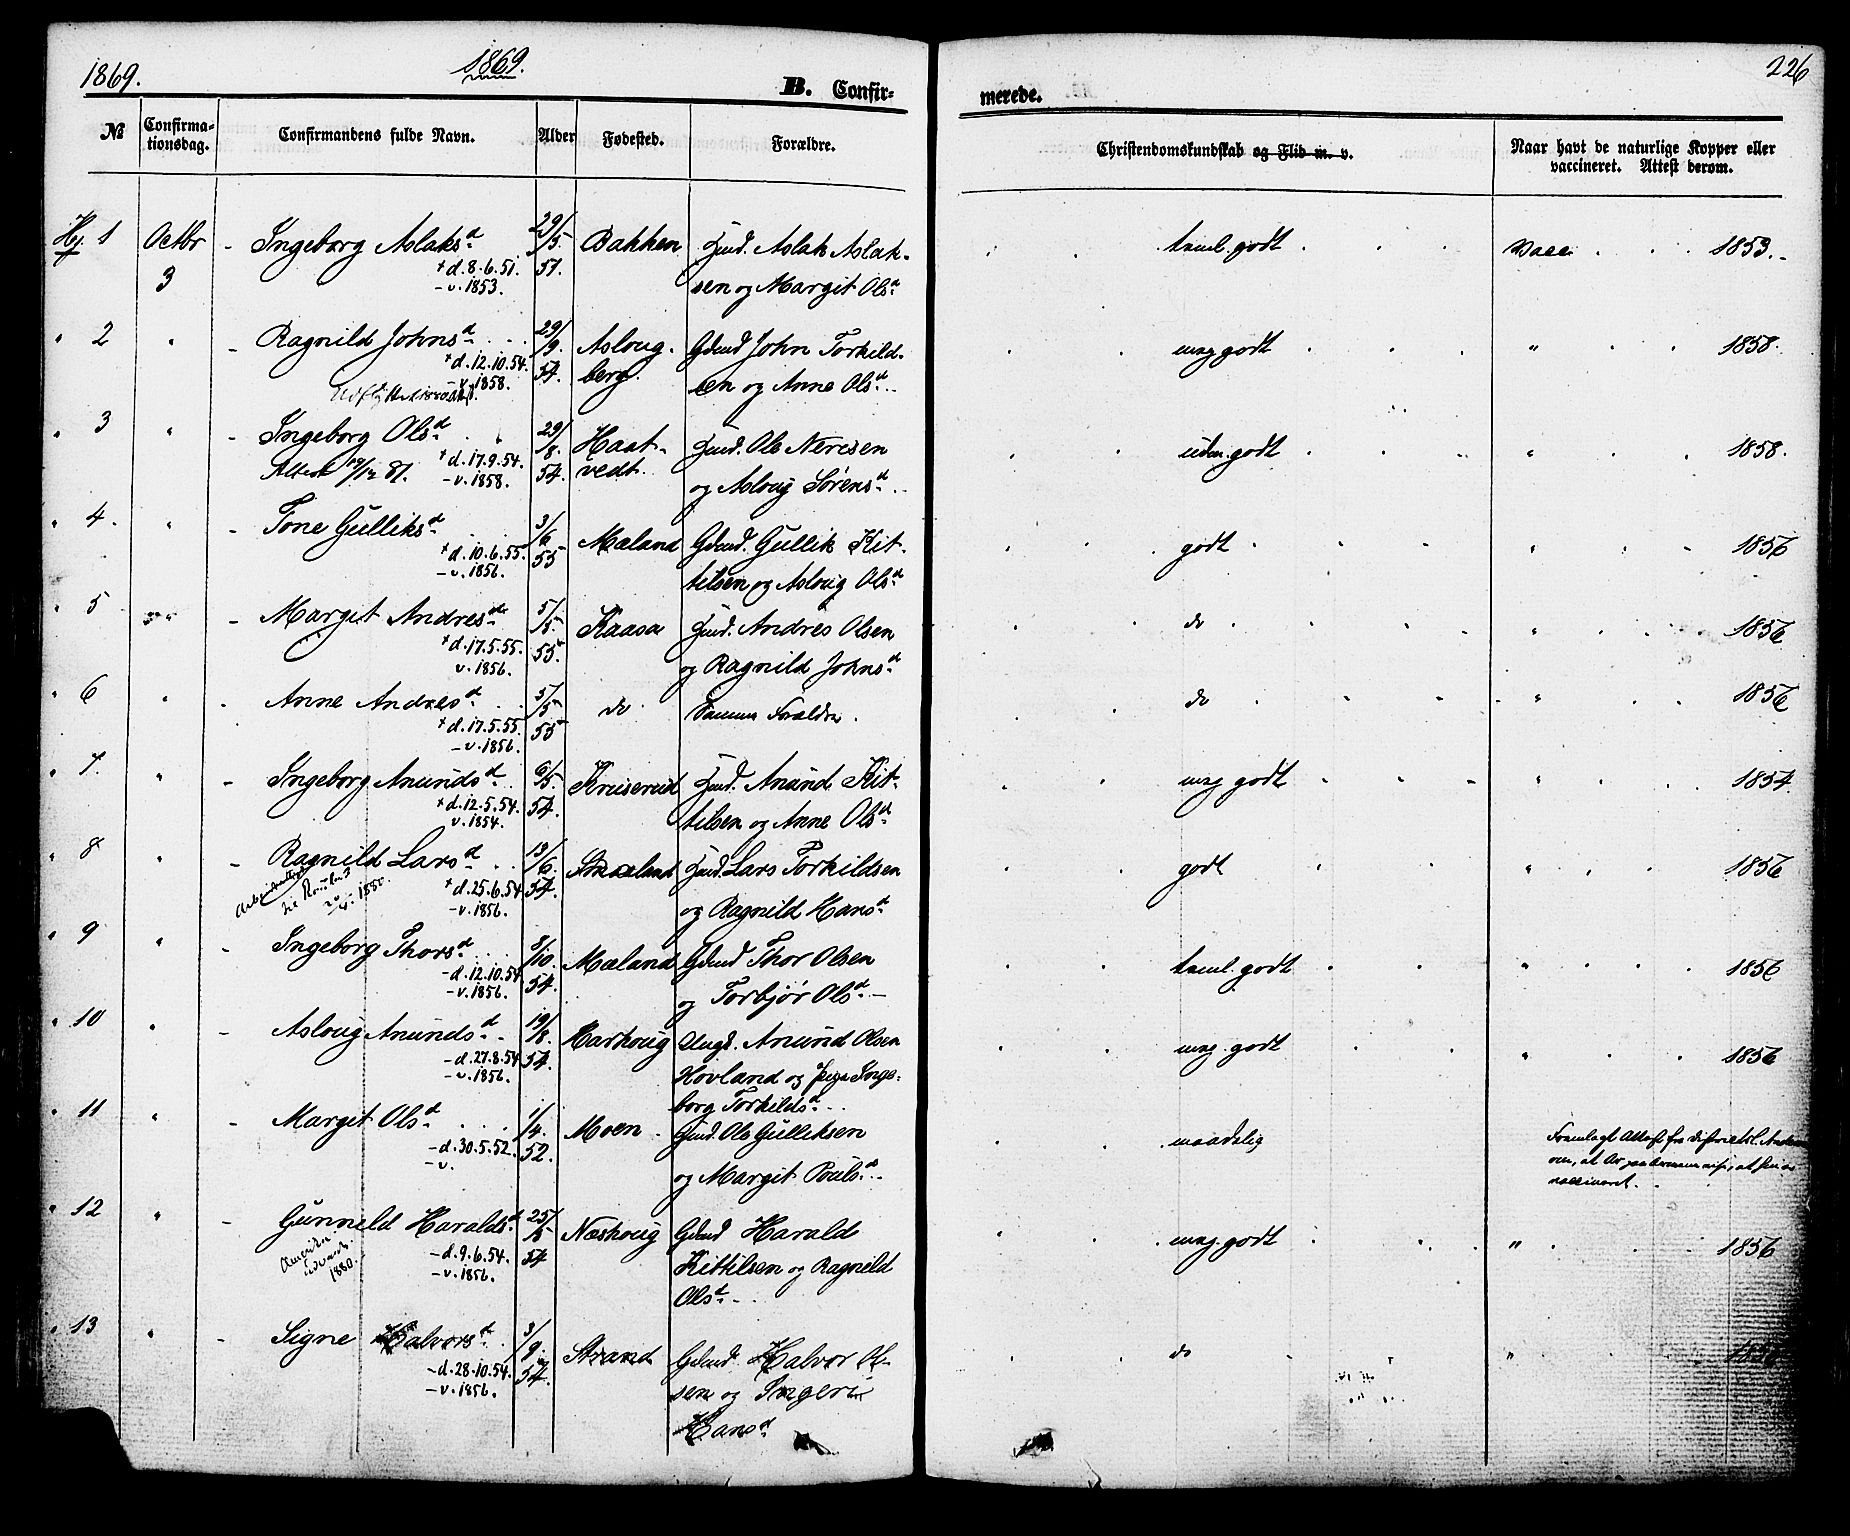 1869.
1869.
226
B. Confir-
merede.
№
Confirma-
tionsdag.
Confirmandens fulde Navn.
Alder
Fødested.
Forældre.
Christendomskundskab og Flid m. v.
Naar havt de naturlige Kopper eller
vaccineret. Attest derom.
Hj. 1 Octbr 3 - Ingeborg Aslaksd 29/5. 51. Bakken Aslak Aslak-
+ d. 8.6.51. sen og Margit Olsd
- v. 1853.
taml. godt Vacc. 1853.-
" 2 " - Ragnild Johnsd 29/9. 54. Asloug- Gdmd John Torkild-
+ d. 12.10.54. berg. sen og Anne Olsd
- v. 1858.
mag godt " 1858.
" 3 " - Ingeborg Olsd 29/8. 54. Haat- Ole Neresen
Attest 19/12 81. + d. 17.9.54. vedt. og Asloug Sørensd
- v. 1858.
uden. godt " 1858.
" 4. " - Tone Gulliksd 3/6 55 Mæland Gdmd. Gullik Kit-
+ d. 10.6.55. tilsen og Asloug Olsd
- v. 1856.
godt " 1856
" 5 " - Margit Andresd 5/5. 55. Kaasa Andres Olsen
+ d. 17.5.55. og Ragnild Johnsd
v. 1856.
do " 1856
" 6 " - Anne Andresd 5/5 55 do Samme Forældre.
+ d. 17.5.55.
- v. 1856.
do " 1856
" 7. " - Ingeborg Anundsd 6/5. 54. Kruserud Anund Kit-
+ d. 12.5.54. tilsen og Anne Olsd
v. 1854.
mag godt " 1854.
" 8 " - Ragnild Larsd 13/6. 54. Smaaland Lars Torkildsen
1880. + d. 25.6.54 og Ragnild Hansd
- v. 1856.
godt " 1856
" 9 " - Ingeborg Thorsd 8/10. 54. Mæland Gdmd Thor Olsen
- d. 12.10.54 og Torbjør Olsd -
- v. 1856.
taml. godt " 1856
" 10 " - Asloug Anundsd 19/8. 54. Harhoug Ungk. Anund Olsen
- d. 27.8.54 Hovland og Pige Inge-
- v. 1856. borg Torkildsd
mag. godt " 1856
" 11 " - Margit Olsd 1/4. 52. Moen Ole Gulliksen
- d. 30.5.52. og Margit Poulsd
- v.
maadelig Fremlagt Attest fra
om, at at hun er
vaccineret.
" 12 " - Gunneld Haraldsd 25/5 54 Næshoug Gdmd Harald
Amerika - d. 9.6.54. Kittilsen og Ragnild
1880. - v. 1856. Olsd
mag. godt " 1856
" 13 " - Signe Halvorsd 3/9. 54. Strand Gdmd Halvor Ol-
- d. 28.10.54. sen og Ingeri
- v. 1856. Hansd
do " 1856